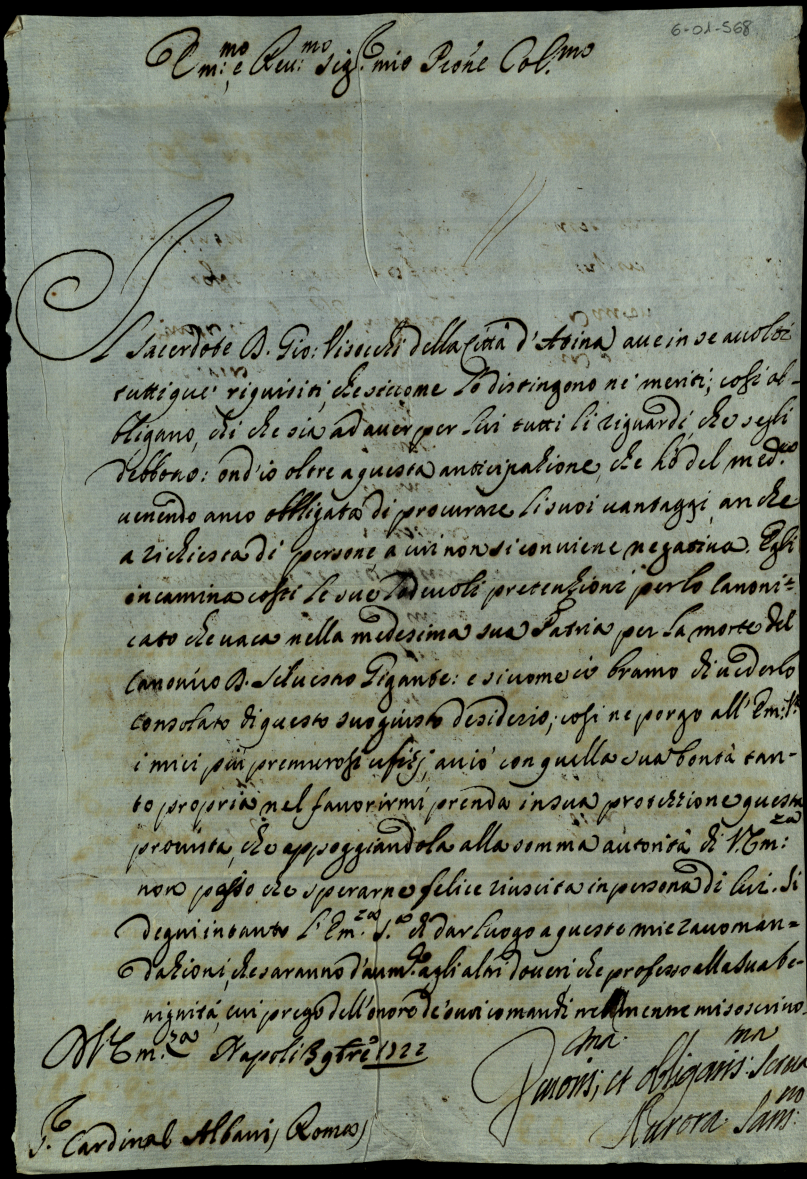 6-01-568
Em:mo e Reu:mo Sig.r mio Pròne Col.mo
Il Sacerdote D. Gio: Visocchi della Città d'Atina aue in se auolti
tutti que' riquisiti, che siccome lo distingono ne' meriti; così ob-
bligano, chi che sia ad auer per lui tutti li riguardi, che segli
debbono: ond'io oltre a questa anticipazione, che hò del med.mo
uenendo anco obbligata di procurare li suoi uantaggi, anche
a richiesta di persone, a cui non si conuiene negatiua. Egli
incamina costì le sue lodeuoli pretenzioni per lo Canoni=
cato che uaca nella medesima sua Patria per la morte del
Canonico D. Siluestro Gigante: e siccome io bramo di uederlo
consolato di questo suo giusto desiderio; così ne porgo all' Em: V.
i miei più premurosi ufizj, acciò con quella sua bontà tan-
to propria nel fauorirmi prenda in sua protezzione questa
prouista, che appoggiandola alla somma autorità di V. Em:za
non posso che sperarne felice riuscita in persona di lui. Si
degni intanto l' Em.za S.a di dar luogo a queste mie raccoman=
dazioni, che saranno d'aum.to agli altri doueri che professo alla sua be-
nignità, cui prego dell'onore de' suoi comandi nel mentre mi soscriuo.
Di V. Em.za Napoli 3 9bre 1722
Deuotis:ma, et obligatis:ma Serua
Aurora San:no
S.r Cardinal Albani, Roma